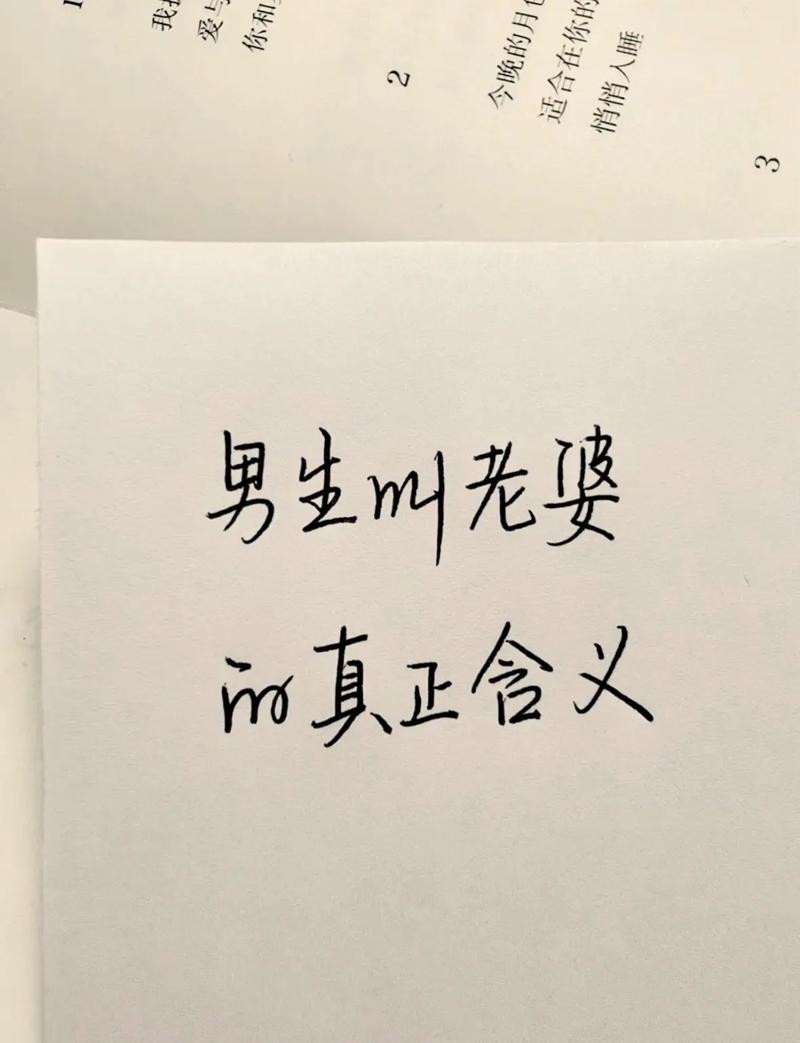 1
我
爱与
你和
2
今晚的月
适合在你的
悄悄入睡
3
男生叫老婆
的真正含义